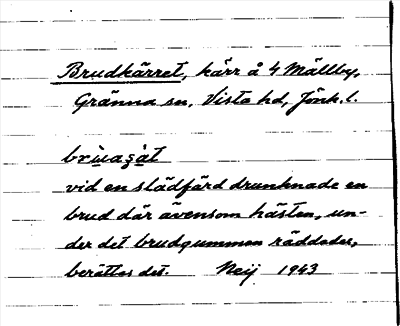 Brudkärret, kärr å 4 Mällby,
Gränna sn, Vista hd, Jönk. l.
vid en slädfärd drunknade en
brud där ävensom hästen, un-
der det brudgummen räddades,
berättas det. Neij 1943